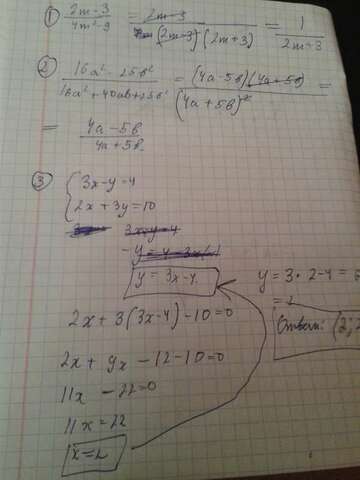 ① 2m-3 / 4m²-9 = 2m-3 / (2m-3)(2m+3) = 1 / 2m+3
② 16a² - 25b² / 16a² + 40ab + 25b² = (4a-5b)(4a+5b) / (4a+5b)² =
= 4a-5b / 4a+5b
③ { 3x-y-4
2x+3y=10
y = 3x-4
y = 3·2-4=
= 2
2x+3(3x-4)-10=0
Ответ: (2;2
2x+9x-12-10=0
11x-22=0
11x=22
x=2